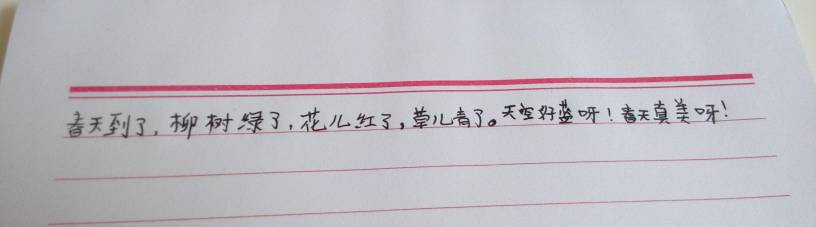 春天到了，柳树绿了，花儿红了，草儿青了。天空好蓝呀！春天真美呀！